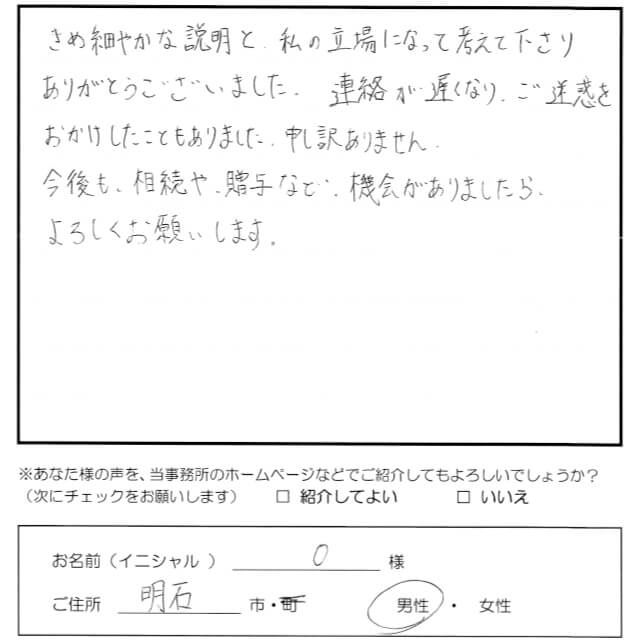 きめ細やかな説明と、私の立場になって考えて下さり
ありがとうございました。連絡が遅くなり、ご迷惑を
おかけしたこともありました、申し訳ありません。
今後も、相続や、贈与など、機会がありましたら、
よろしくお願いします。
※あなた様の声を、当事務所のホームページなどでご紹介してもよろしいでしょうか？
（次にチェックをお願いします） □ 紹介してよい □ いいえ
お名前（イニシャル ） O 様
ご住所 明石 市・町 男性 ・ 女性